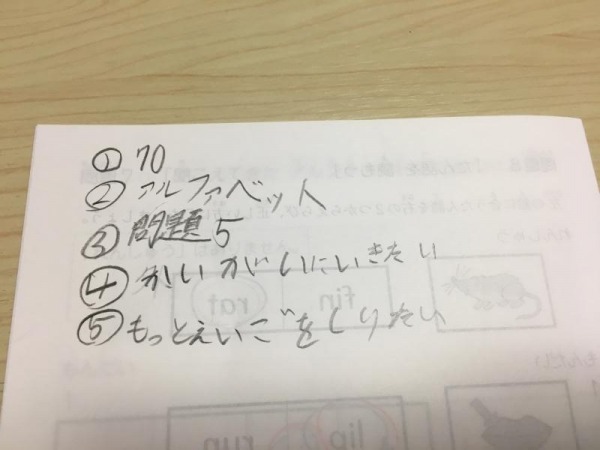 ① 70
② アルファベット
③ 問題5
④ かいがいにいきたい
⑤ もっとえいごをしりたい
rat
fin
lip
run